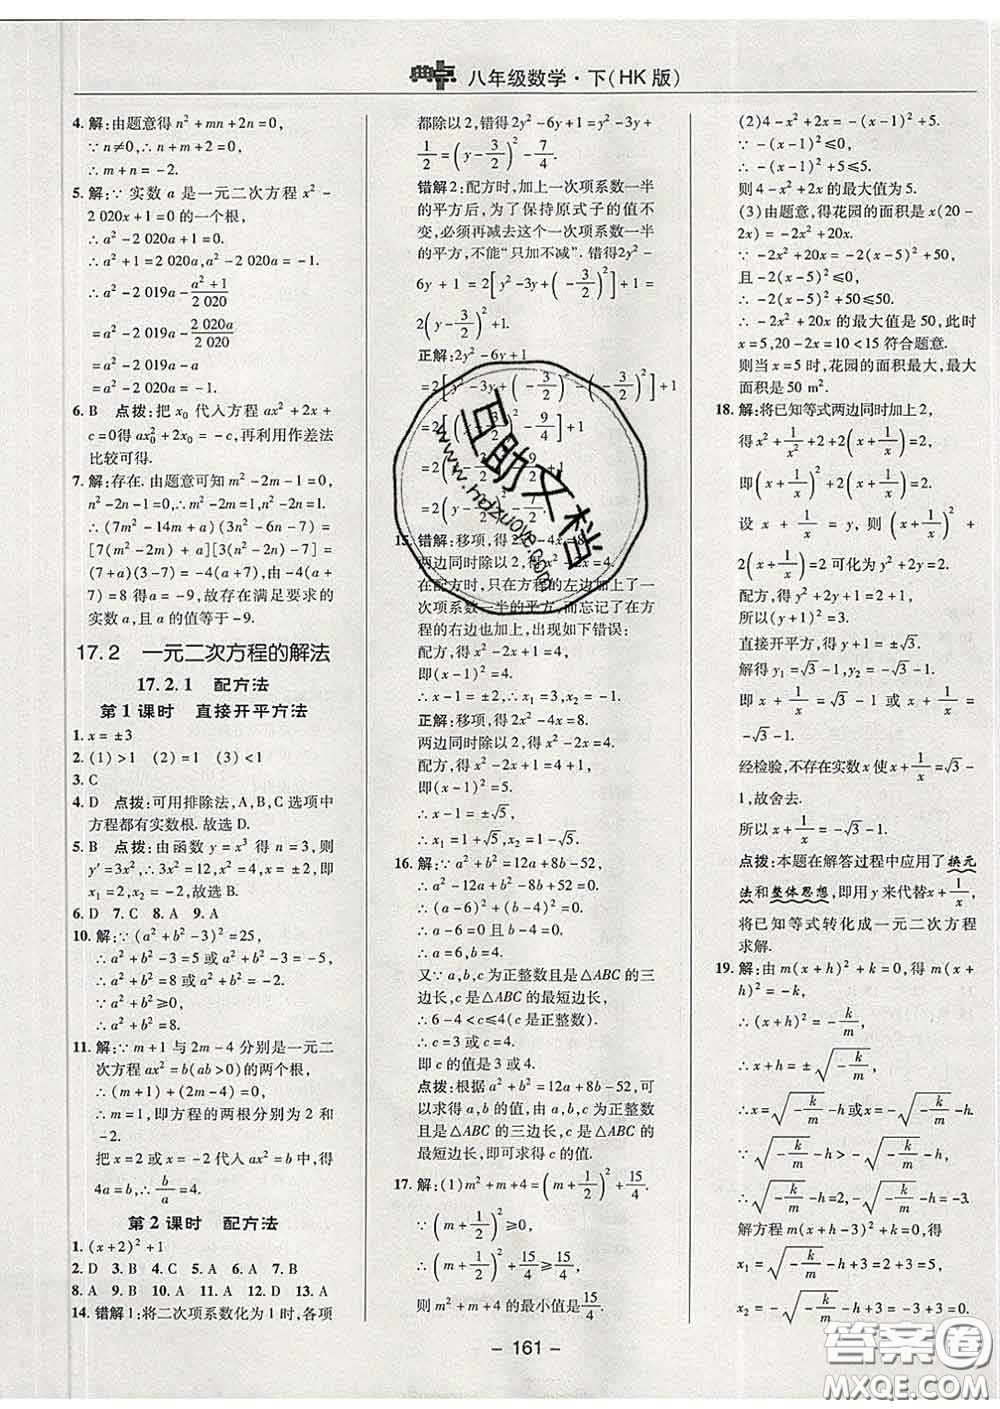 典点 八年级数学·下(HK版)
4. 解:由题意得 n²+mn+2n=0,
∵n≠0,∴n+m+2=0,
∴m+n=-2.
5. 解:∵实数 a 是一元二次方程 x²-
2 020x+1=0 的一个根,
∴a²-2 020a+1=0,
∴a²+1=2 020a,a²-2 020a=-1.
∴a²-2 019a-(a²+1)/2 020
=a²-2 019a-2 020a/2 020
=a²-2 019a-a
=a²-2 020a=-1.
6. B 点拨:把 x₀ 代入方程 ax²+2x+
c=0得 ax₀²+2x₀=-c,再利用作差法
比较可得.
7. 解:存在.由题意可知 m²-2m-1=0,
n²-2n-1=0,∴m²-2m=1,n²-2n=1.
∴(7m²-14m+a)(3n²-6n-7)=
[7(m²-2m)+a][3(n²-2n)-7]=
(7+a)(3-7)=-4(a+7),由-4(a
+7)=8得 a=-9,故存在满足要求的
实数 a,且 a 的值等于-9.
17.2 一元二次方程的解法
17.2.1 配方法
第1课时 直接开平方法
1. x=±3
2. (1)>1 (2)=1 (3)<1
3. C
4. D 点拨:可用排除法,A、B、C选项中
方程都有实数根.故选D.
5. B 点拨:由函数 y=x³ 得 n=3,则
y′=3x²,∴3x²=12,x²=4,x=±2,即
x₁=2,x₂=-2,故选B.
6. D 7. C 8. A 9. A
10. 解:∵(a²+b²-3)²=25,
∴a²+b²-3=5或a²+b²-3=-5.
∴a²+b²=8或a²+b²=-2.
∵a²+b²≥0,
∴a²+b²=8.
11. 解:∵m+1 与 2m-4 分别是一元二
次方程 ax²=b(ab>0)的两个根,
∴(m+1)+(2m-4)=0,
∴m=1,即方程的两根分别为2和
-2.
把 x=2或 x=-2代入 ax²=b 中,得
4a=b,∴b/a=4.
第2课时 配方法
1. (x+2)²+1
2. D 3. B 4. B 5. C 6. A 7. B
8. A 9. B 10. C 11. A 12. B 13. A
14. 错解1:将二次项系数化为1时,各项
都除以2,错得2y²-6y+1=y²-3y+
1/2=(y-3/2)²-7/4.
错解2:配方时,加上一次项系数一半
的平方后,为了保持原式子的值不
变,必须再减去这个一次项系数一半
的平方,不能“只加不减”.错得2y²-
6y+1=2[y²-3y+(-3/2)²]+1=
2(y-3/2)²+1.
正解:2y²-6y+1
=2[y²-3y+(-3/2)²-(-3/2)²]+1
15. 错解:移项,得2x²-4x=8,
两边同时除以2,得x²-2x=4.
在配方时,只在方程的左边加上了一
次项系数一半的平方,而忘记了在方
程的右边也加上,出现如下错误:
即(x-1)²=4,
∴x-1=±2,∴x₁=3,x₂=-1.
正解:移项,得2x²-4x=8.
两边同时除以2,得x²-2x=4.
配方,得x²-2x+1=4+1,
即(x-1)²=5.
∴x-1=±√5,
∴x₁=1+√5,x₂=1-√5.
16. 解:∵a²+b²=12a+8b-52,
∴a²-12a+b²-8b+52=0.
∴(a-6)²+(b-4)²=0,
∴a-6=0且b-4=0.
∴a=6,b=4.
又∵a,b,c为正整数且是△ABC的三
边长,c是△ABC的最短边长,
∴6-4<c≤4(c是正整数).
∴c=3或4.
即c的值是3或4.
点拨:根据a²+b²=12a+8b-52,可
以求得a,b的值,由a,b,c为正整数
且是△ABC的三边长,c是△ABC的
最短边长,即可求得c的值.
17. 解:(1)m²+m+4=(m+1/2)²+15/4.
∵(m+1/2)²≥0,
∴(m+1/2)²+15/4≥15/4.
则m²+m+4的最小值是15/4.
(2)4-x²+2x=-(x-1)²+5.
∵-(x-1)²≤0,
∴-(x-1)²+5≤5.
则4-x²+2x的最大值为5.
(3)由题意,得花园的面积是x(20-
2x)=-2x²+20x,
∵-2x²+20x=-2(x-5)²+50,
且-2(x-5)²≤0,
∴-2(x-5)²+50≤50.
∴-2x²+20x的最大值是50,此时
x=5,20-2x=10<15符合题意.
则当x=5时,花园的面积最大,最大
面积是50 m².
18. 解:将已知等式两边同时加上2,
得x²+1/x²+2+2(x+1/x)=2,
即(x+1/x)²+2(x+1/x)=2.
设x+1/x=y,则(x+1/x)²+
2(x+1/x)=2可化为y²+2y=2.
配方,得y²+2y+1=2+1,
所以(y+1)²=3.
直接开平方,得y+1=±√3.
解得y₁=√3-1,y₂=-√3-1.
即x+1/x=√3-1或x+1/x=
-√3-1.
经检验,不存在实数x使x+1/x=√3-
1,故舍去.
所以x+1/x=-√3-1.
点拨:本题在解答过程中应用了换元
法和整体思想,即用y来代替x+1/x,
将已知等式转化成一元二次方程
求解.
19. 解:由m(x+h)²+k=0,得m(x+
h)²=-k,
∴(x+h)²=-k/m,
∴x+h=±√(-k/m),
∴x=√(-k/m)-h或x=-√(-k/m)-h.
∵√(-k/m)-h>-√(-k/m)-h,
∴√(-k/m)-h=2,-√(-k/m)-h=-3.
解方程m(x+h-3)²+k=0,得
x₁=√(-k/m)-h+3=2+3=5,
x₂=-√(-k/m)-h+3=-3+3=0.
- 161 -
互助文档
www.hdzuoye.com
答案圈
MXQE.COM